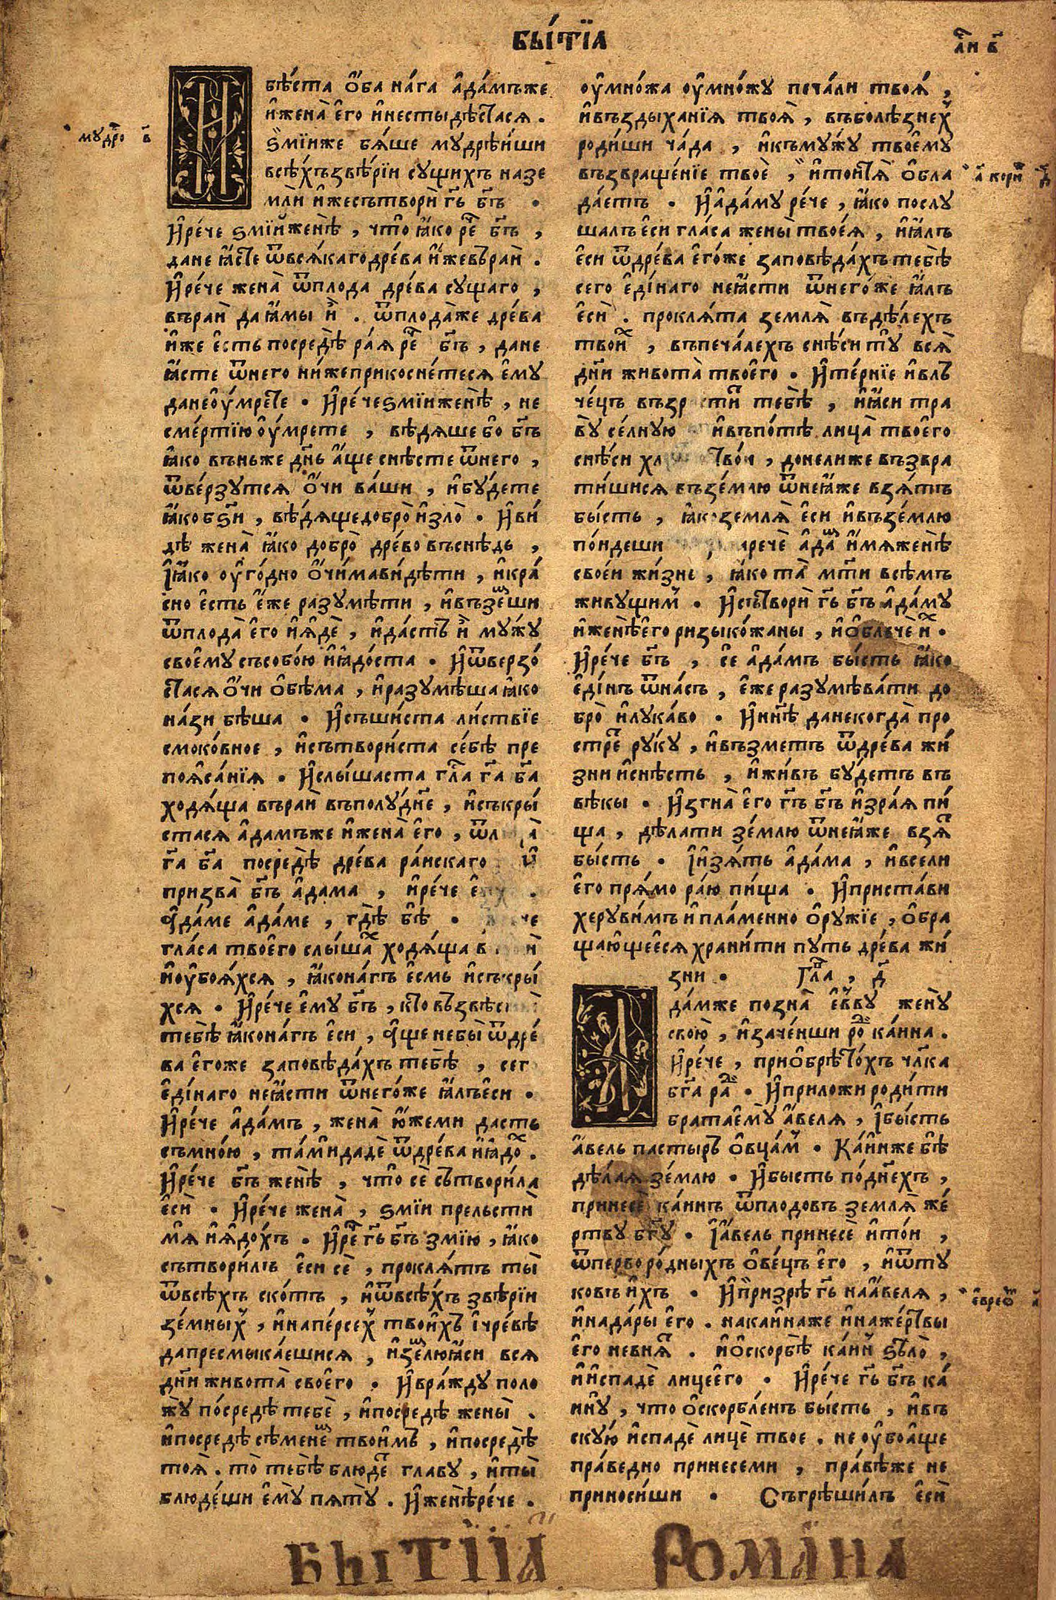 БЫ́ТЇА
мꙋдро в҃
бѣ́ста ѻ҆́ба на́га а҆да́мъже
и҆жена̀ є҆го̀ и҆нестыдѣ́стася .
Ѕмі́иже бя́ше мꙋдрѣ́иши
всѣ́хъзвѣ́рїи сꙋ́щихъ назе
млѝ и҆́жесътворѝ гь҃ бг҃ъ .
И҆рече ѕмі́иженѣ̀ , что̀ ꙗ҆́ко ре҃ бг҃ъ ,
дане ꙗ҆́сте ѿвся́кагодре́ва и҆́жевъраѝ .
И҆рече жена̀ ѿплода̀ дре́ва сꙋ́щаго ,
въраѝ да ꙗ҆мы̀ . ѿплода́же дре́ва
и҆́же є҆́сть посредѣ̀ ра́я ре҃ бг҃ъ , дане
ꙗ҆́сте ѿнего̀ нижеприкосне́теся є҆мꙋ̀
данеѹ҆́мрете . И҆рече ѕмі́иженѣ̀ , не
сме́ртїю ѹ҆́мрете , вѣ́дяше бо бг҃ъ
ꙗ҆́ко во́ньже дн҃ь а҆́ще снѣ́сте ѿнего̀ ,
ѿве́рзꙋтся ѻ҆́чи ва́ши , и҆бꙋ́дете
ꙗ҆́ко бѕ҃и , вѣ́дящедобро̀ и҆зло̀ . И҆ви
дѣ жена̀ ꙗ҆́ко добро̀ дре́во въснѣ́дь ,
І҆ꙗ҆́ко ѹ҆го́дно ѻ҆чи́мави́дѣти , и҆кра́
сно є҆́сть є҆́же разꙋмѣ́ти , и҆въземши
ѿплода̀ є҆го̀ и҆ꙗ҆дѐ , и҆да́стъ мꙋ́жꙋ
своемꙋ съсобо́ю и҆ꙗ҆до́ста . И҆ѿверзо́
стася ѻ҆́чи ѻ҆бѣ́ма , и҆разꙋмѣ́ша ꙗ҆́ко
на́зи бѣ́ша . И҆сшиста ли́ствїе
смоко́вное , и҆сътвори́ста се́бѣ пре
поя́санїя . И҆слы́шаста гла҃ га҃ ба҃
ходя́ща въраѝ въполꙋ́дне , и҆съкры́
стася а҆да́мъже и҆жена̀ є҆го̀ ,
га҃ ба҃ посредѣ̀ дре́ва ра́искаго
призва̀ бг҃ъ а҆да́ма , и҆рече
а҆да́ме а҆да́ме , где бѣ̀ .
гла́са твоего̀ слы́шах ходя́ща
и҆ѹ҆боя́хся , ꙗ҆́конагъ є҆́смь и҆съкры́
хся . И҆рече є҆мꙋ̀ бг҃ъ , кто възвѣсти
тебѣ̀ ꙗ҆́конагъ є҆сѝ , а҆́ще небы̀ ѿдре́
ва є҆го́же заповѣ́дахъ тебѣ̀ ,
є҆ди́наго неꙗ҆́сти ѿнего́же ꙗ҆́лъесѝ .
И҆рече а҆да́мъ , жена̀ ю҆́жеми дастъ
съмно́ю , та́мидадѐ ѿдре́ва и҆ꙗ҆дох .
И҆рече бг҃ъ женѣ̀ , что̀ сѐ сътвори́ла
є҆сѝ . И҆рече жена̀ , ѕмі́и прельсти
мя̀ и҆ꙗ҆до́хъ . И҆ре҃ гь҃ бг҃ъ змі́ю , ꙗ҆́ко
сътвори́лъ є҆сѝ сѐ , про́клятъ ты̀
ѿвсѣ́хъ ско́тъ , и҆ѿвсѣ́хъ звѣ́рїи
зе́мных , и҆напе́рсех твои́хъ і҆чре́вѣ
дапресмыка́ешися , и҆зе́млюꙗ҆сѝ вся
дн҃и живота̀ своего̀ . И҆вра́ждꙋ поло
жꙋ̀ посредѣ̀ тебѐ , и҆посредѣ̀ жены̀ .
и҆посредѣ̀ сѣ́менем твои́мъ , и҆посредѣ̀
тоя̀ . то̀ тебѣ̀ блюде главꙋ , и҆ты̀
блюде́ши є҆мꙋ̀ пя́тꙋ . И҆женѣ̀рече .
ѹ҆мно́жа ѹ҆мно́жꙋ печа́ли твоя̀ ,
и҆въздыха́нїя твоя̀ , въболѣ́знех
роди́ши ча́да , и҆къмꙋ́жꙋ твоемꙋ
възвраще́нїе твоѐ , и҆то́йтя ѻ҆бла
да́етъ . И҆а҆да́мꙋ рече , ꙗ҆́ко послꙋ
шалъ є҆сѝ гла́са жены̀ твоея̀ , и҆ꙗ҆́лъ
є҆сѝ ѿдре́ва є҆го́же заповѣ́дахътебѣ̀
сего̀ є҆ди́наго неꙗ҆́сти ѿнего́же ꙗ҆́лъ
є҆сѝ . про́клята земля̀ въдѣ́лехъ
твоих , въпеча́лехъ снѣ́си тꙋ̀ вся̀
дн҃и живота̀ твоего̀ . И҆те́рнїе и҆вл
че́цъ тебѣ̀ , и҆ꙗ҆сѝ тра
вꙋ̀ се́лнꙋю и҆въпо́тѣ лица̀ твоего̀
снѣ́си , до́нележе възвра
ти́шися въ зе́млю ѿнеꙗ҆́же взятъ
бысть , земля̀ є҆сѝ и҆въземлю
по́идеши нарече а҆да́м и҆́мяженѣ̀
свое́и жизнь , ꙗ҆́ко та̀ мт҃и всѣ́мъ
живꙋ́щим . И҆сътворѝ гь҃ бг҃ъ а҆да́мꙋ
и҆женѣ̀ є҆го̀ ри́зыко́жаны , и҆ѻ҆блъчѐ их .
И҆рече бг҃ъ , се а҆да́мъ бы́сть ꙗ҆́ко
є҆ди́нъ ѿна́съ , є҆́же разꙋмѣва́ти до
бро̀ и҆лꙋка́во . И҆ны́нѣ данекогда̀ про
стре рꙋ́кꙋ , и҆възметъ ѿдре́ва жи́
зни и҆снѣ́сть , и҆живъ бꙋ́детъ въ
вѣ́кы . И҆згна̀ є҆го̀ гь҃ бг҃ъ и҆зра́я пи́
ща , дѣ́лати зе́млю ѿнеꙗ҆́же взят
бы́сть . І҆и҆зя́тъ а҆да́ма , и҆всели
є҆го̀ пря́мо ра́ю пи́ща . И҆приста́ви
херꙋви́мъ и҆пла́менно ѻ҆рꙋ́жїе , ѻ҆бра
ща́ющеёся храни́ти пꙋ́ть дре́ва жи́
зни . Гла҃ , д҃
да́мже позна̀ є҆́ввꙋ женꙋ̀
свою̀ , и҆заче́нши ро́ ка́ина .
И҆рече , приѻ҆брѣто́хъ чл҃ка
бг҃а ра . И҆приложи роди́ти
братаемꙋ̀ а҆́веля , і҆бы́сть
а҆́вель па́стырь ѻ҆вца́м . Ка́инже бѣ
дѣ́лая зе́млю . И҆бысть поднехъ ,
принесѐ ка́инъ ѿплодо́въ земля̀ же́
ртвꙋ бг҃ꙋ . І҆а҆́вель принесѐ и҆то́и ,
ѿперворо́дныхъ ѻ҆ве́цъ є҆го̀ , и҆ѿтꙋ
ко́въ и҆́хъ . И҆призрѣ̀ гь҃ наа҆́веля ,
и҆нада́ры є҆го̀ . нака́инаже и҆наже́ртвы
є҆го̀ невня́т . и҆ѻ҆скорбѣ̀ ка́ин ѕѣло̀ ,
и҆испадѐ лицеего̀ . И҆рече гь҃ бг҃ъ ка́
инꙋ , что ѻ҆ско́рбленъ бысть , и҆въ
скꙋ́ю и҆спадѐ лицѐ твое . не ѹ҆боа҆́ще
пра́ведно принесе́ши , пра́вѣже не
прино́сиши . Съгрѣши́лъ є҆сѝ
а҃ кори҃
евре҃
БЫТІІА РОМАНА